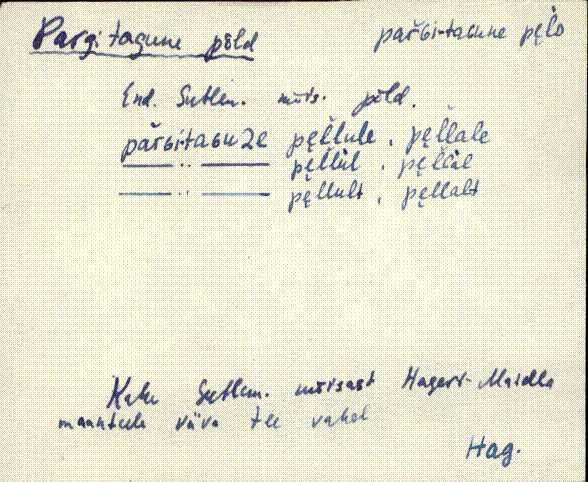 Pargitagune põld pařGi-taGune pe̮lD
End. Sutlem. mõis. põld.
pařGi-taGuze pe̮l̆lule, pe̮l̆lale
—— " —— pe̮l̆lu̬l, pe̮l̆la̬l
—— " —— pe̮llult, pe̮llalt
Sutlem. mõisast Hageri-Maidla
maanteele viiva tee vahel
Hag.